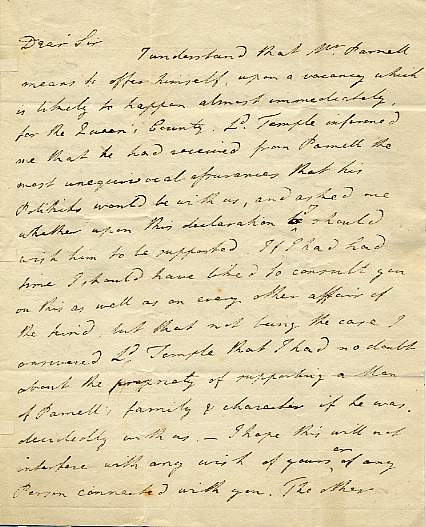 Dear Sir
I understand that Mr. Parnell
means to offer himself, upon a vacancy which
is likely to happen almost immediately,
for the Queen's County. Ld. Temple informed
me that he had received from Parnell the
most unequivocal assurances that his
Politicks would be with us, and asked me
whether upon this declaration I should
wish him to be supported. If I had had
time I should have liked to consult you
on this as well as on every other affair of
the kind, but that not being the case I
answered Ld. Temple that I had no doubt
about the propriety of supporting a Man
of Parnell's family & character if he was
decidedly with us. — I hope this will not
interfere with any wish of yours or of any
Person connected with you. The other